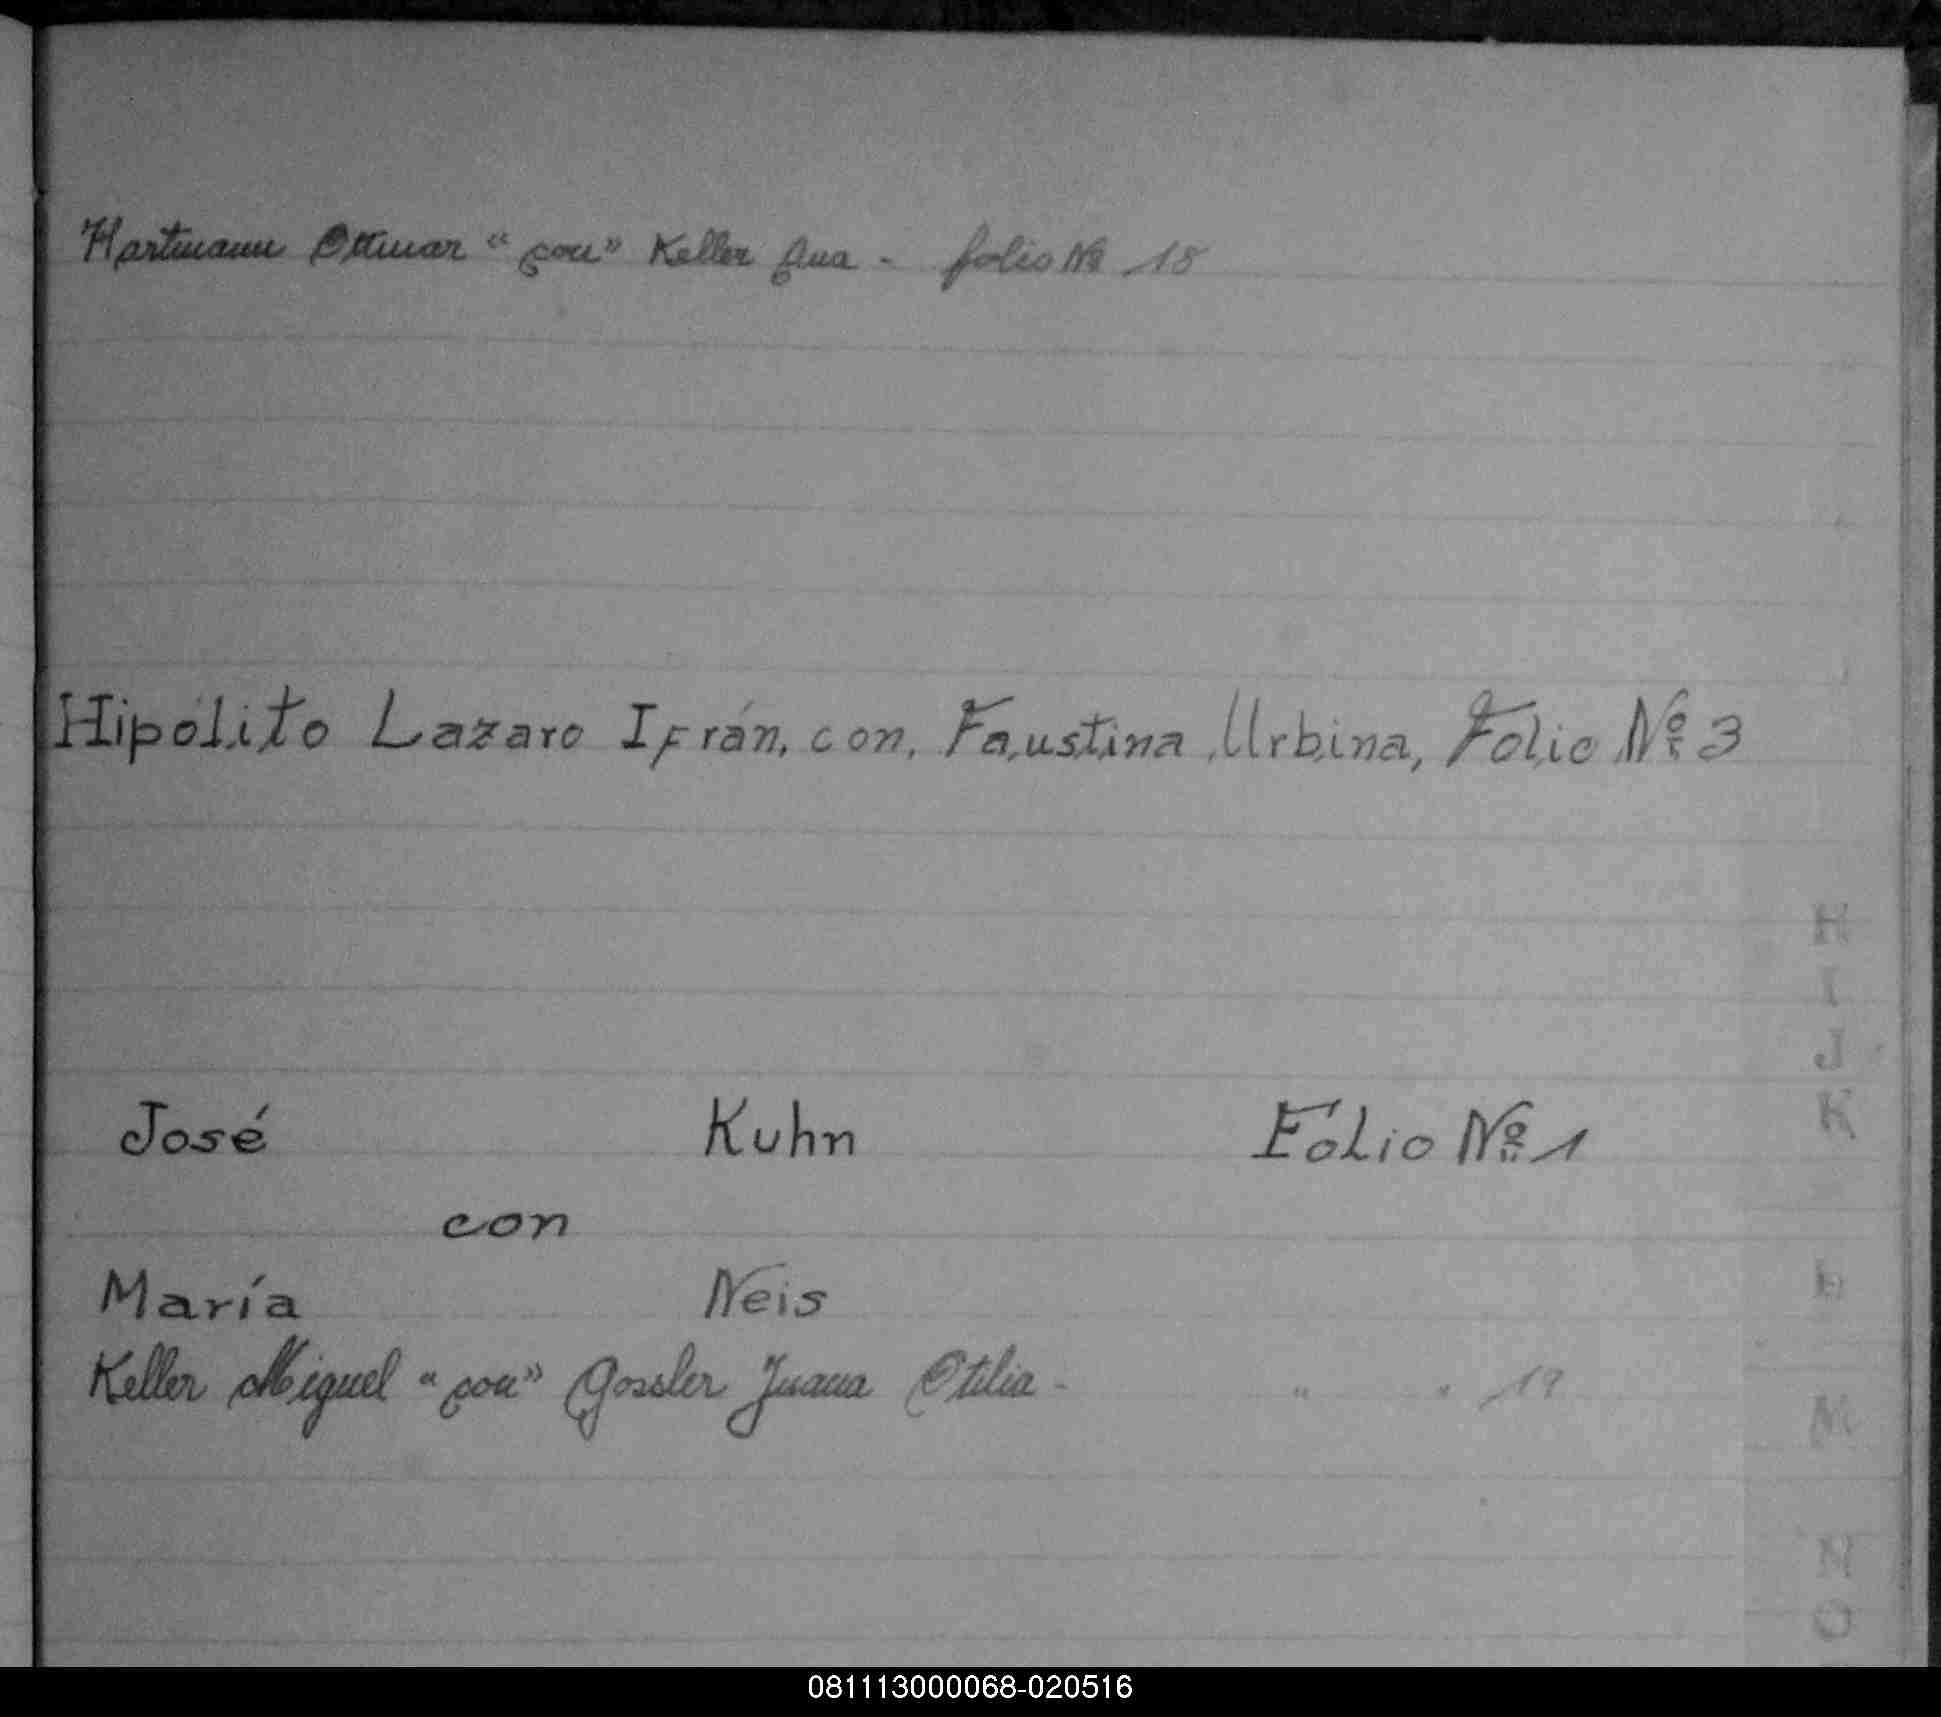 Hartmann Ottmar “con” Keller Ana - folio Nº 18
Hipólito Lazaro Ifrán, con, Faustina Urbina, Folio Nº 3
H
I
J
José Kuhn Folio Nº 1
K
con
María Neis
Keller Miguel “con” Gossler Juana Otilia - " " 19
M
N
O
081113000068-020516